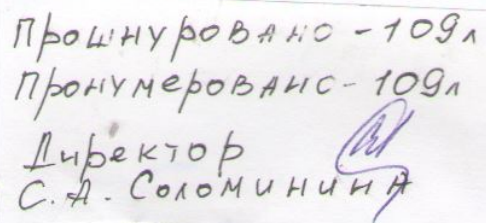 Прошнуровано - 109л
Пронумеровано - 109л
Директор
С.А. Соломинина